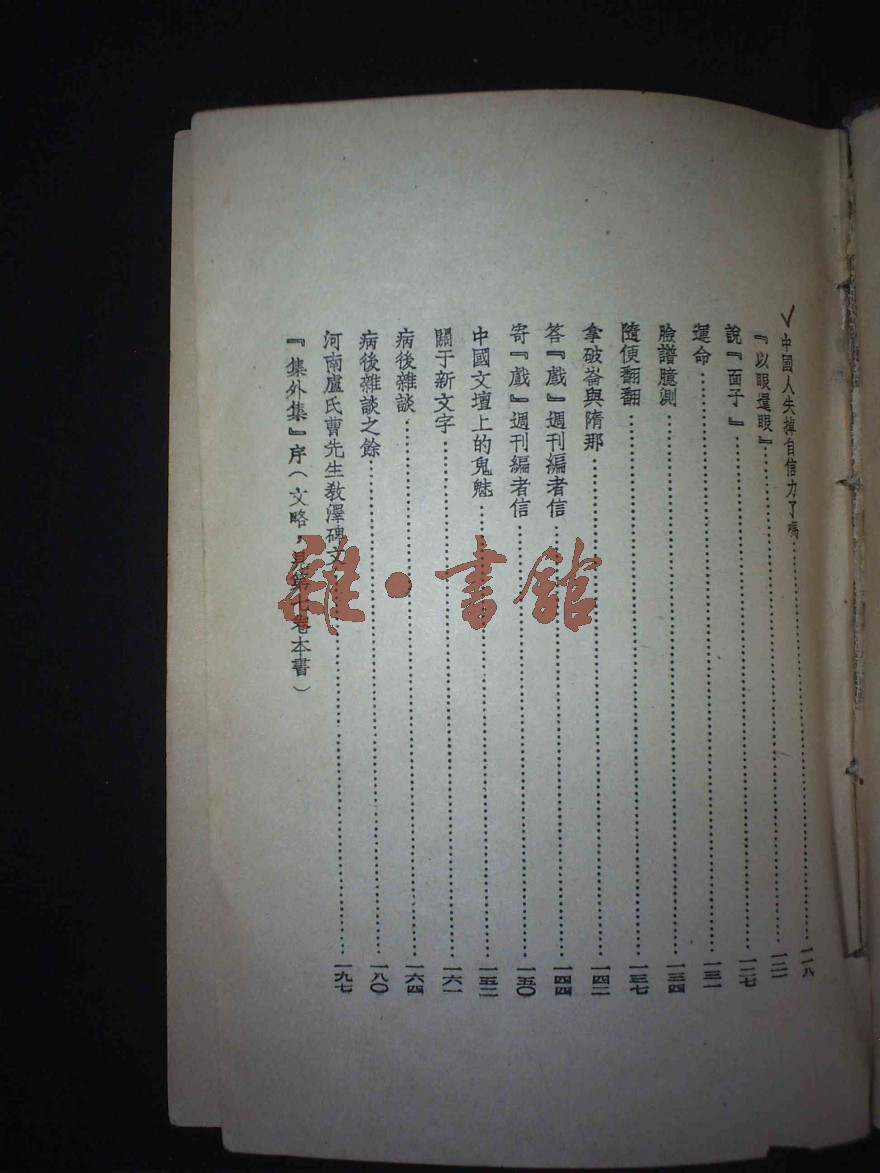 中國人失掉自信力了嗎……一一八
『以眼還眼』……一二一
說『面子』……一二七
運命……一三一
臉譜臆測……一三四
隨便翻翻……一三七
拿破崙與隋那……一四二
答『戲』週刊編者信……一四四
寄『戲』週刊編者信……一五〇
中國文壇上的鬼魅……一五二
關于新文字……一六一
病後雜談……一六四
病後雜談之餘……一八〇
河南盧氏曹先生敎澤碑文……一九七
『集外集』序（文略，見第七卷本書）
雜·書館